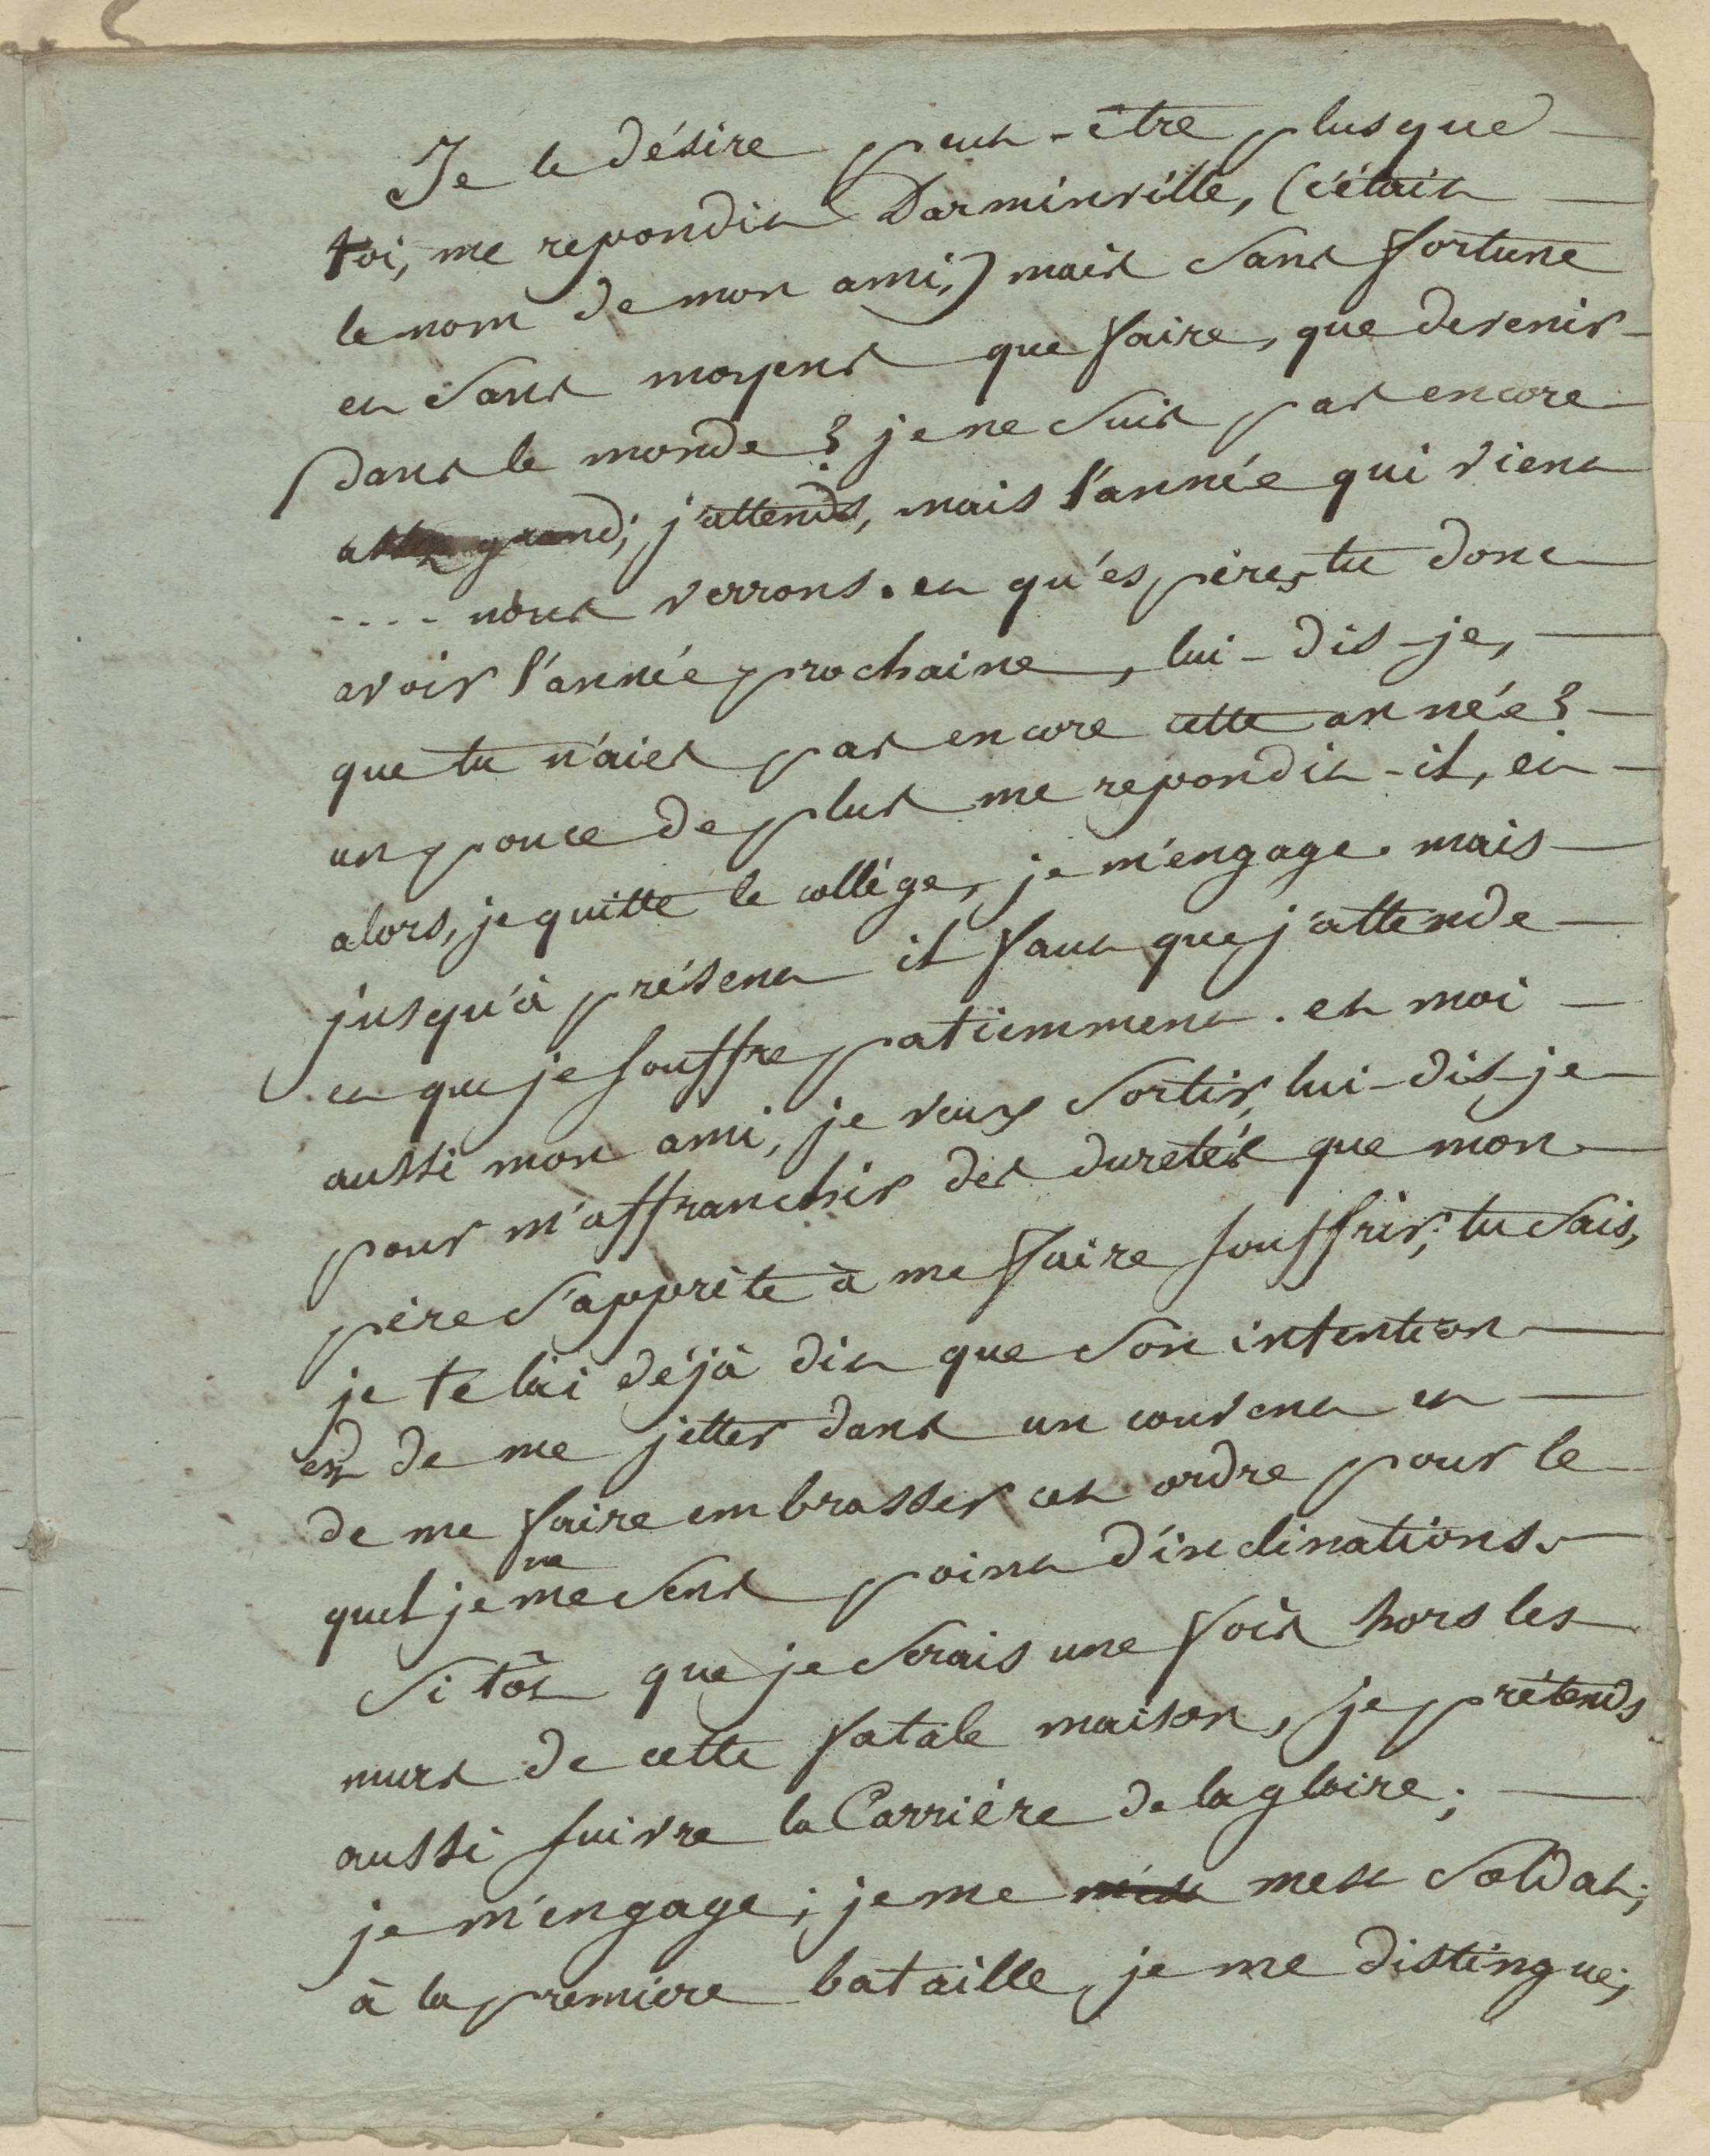 Je le désire peut-être plus que
toi, me repondit Darminville, (c'était
le nom de mon ami,) mais sans fortune
et sans moyens que faire, que devenir
dans le monde ? je ne suis pas encore
assez grand; j'attends, mais l'année qui vient
.... nous verrons. et qu'espères tu donc
avoir l'année prochaine, lui-dis-je,
que tu n'aies pas encore cette année ?
un pouce de plus me repondit-il, et
alors, je quitte le collége, je m'engage. mais
jusqu'à présent il faut que j'attende
et que je souffre patiemment. et moi
aussi mon ami, je veux sortir, lui-dis-je
pour m'affranchir des duretés que mon
père s'apprète à me faire souffrir; tu sais,
je te l'ai déjà dit que son intention
est de me jetter dans un couvent et
de me faire embrasser cet ordre pour le
ne
quel je me sens point d'inclinations.
Si tôt que je serais une fois hors les
murs de cette fatale maison, je prétends
aussi suivre la Carrière de la gloire;
je m'engage; je me mets soldat;
à la premiere bataille, je me distingue;